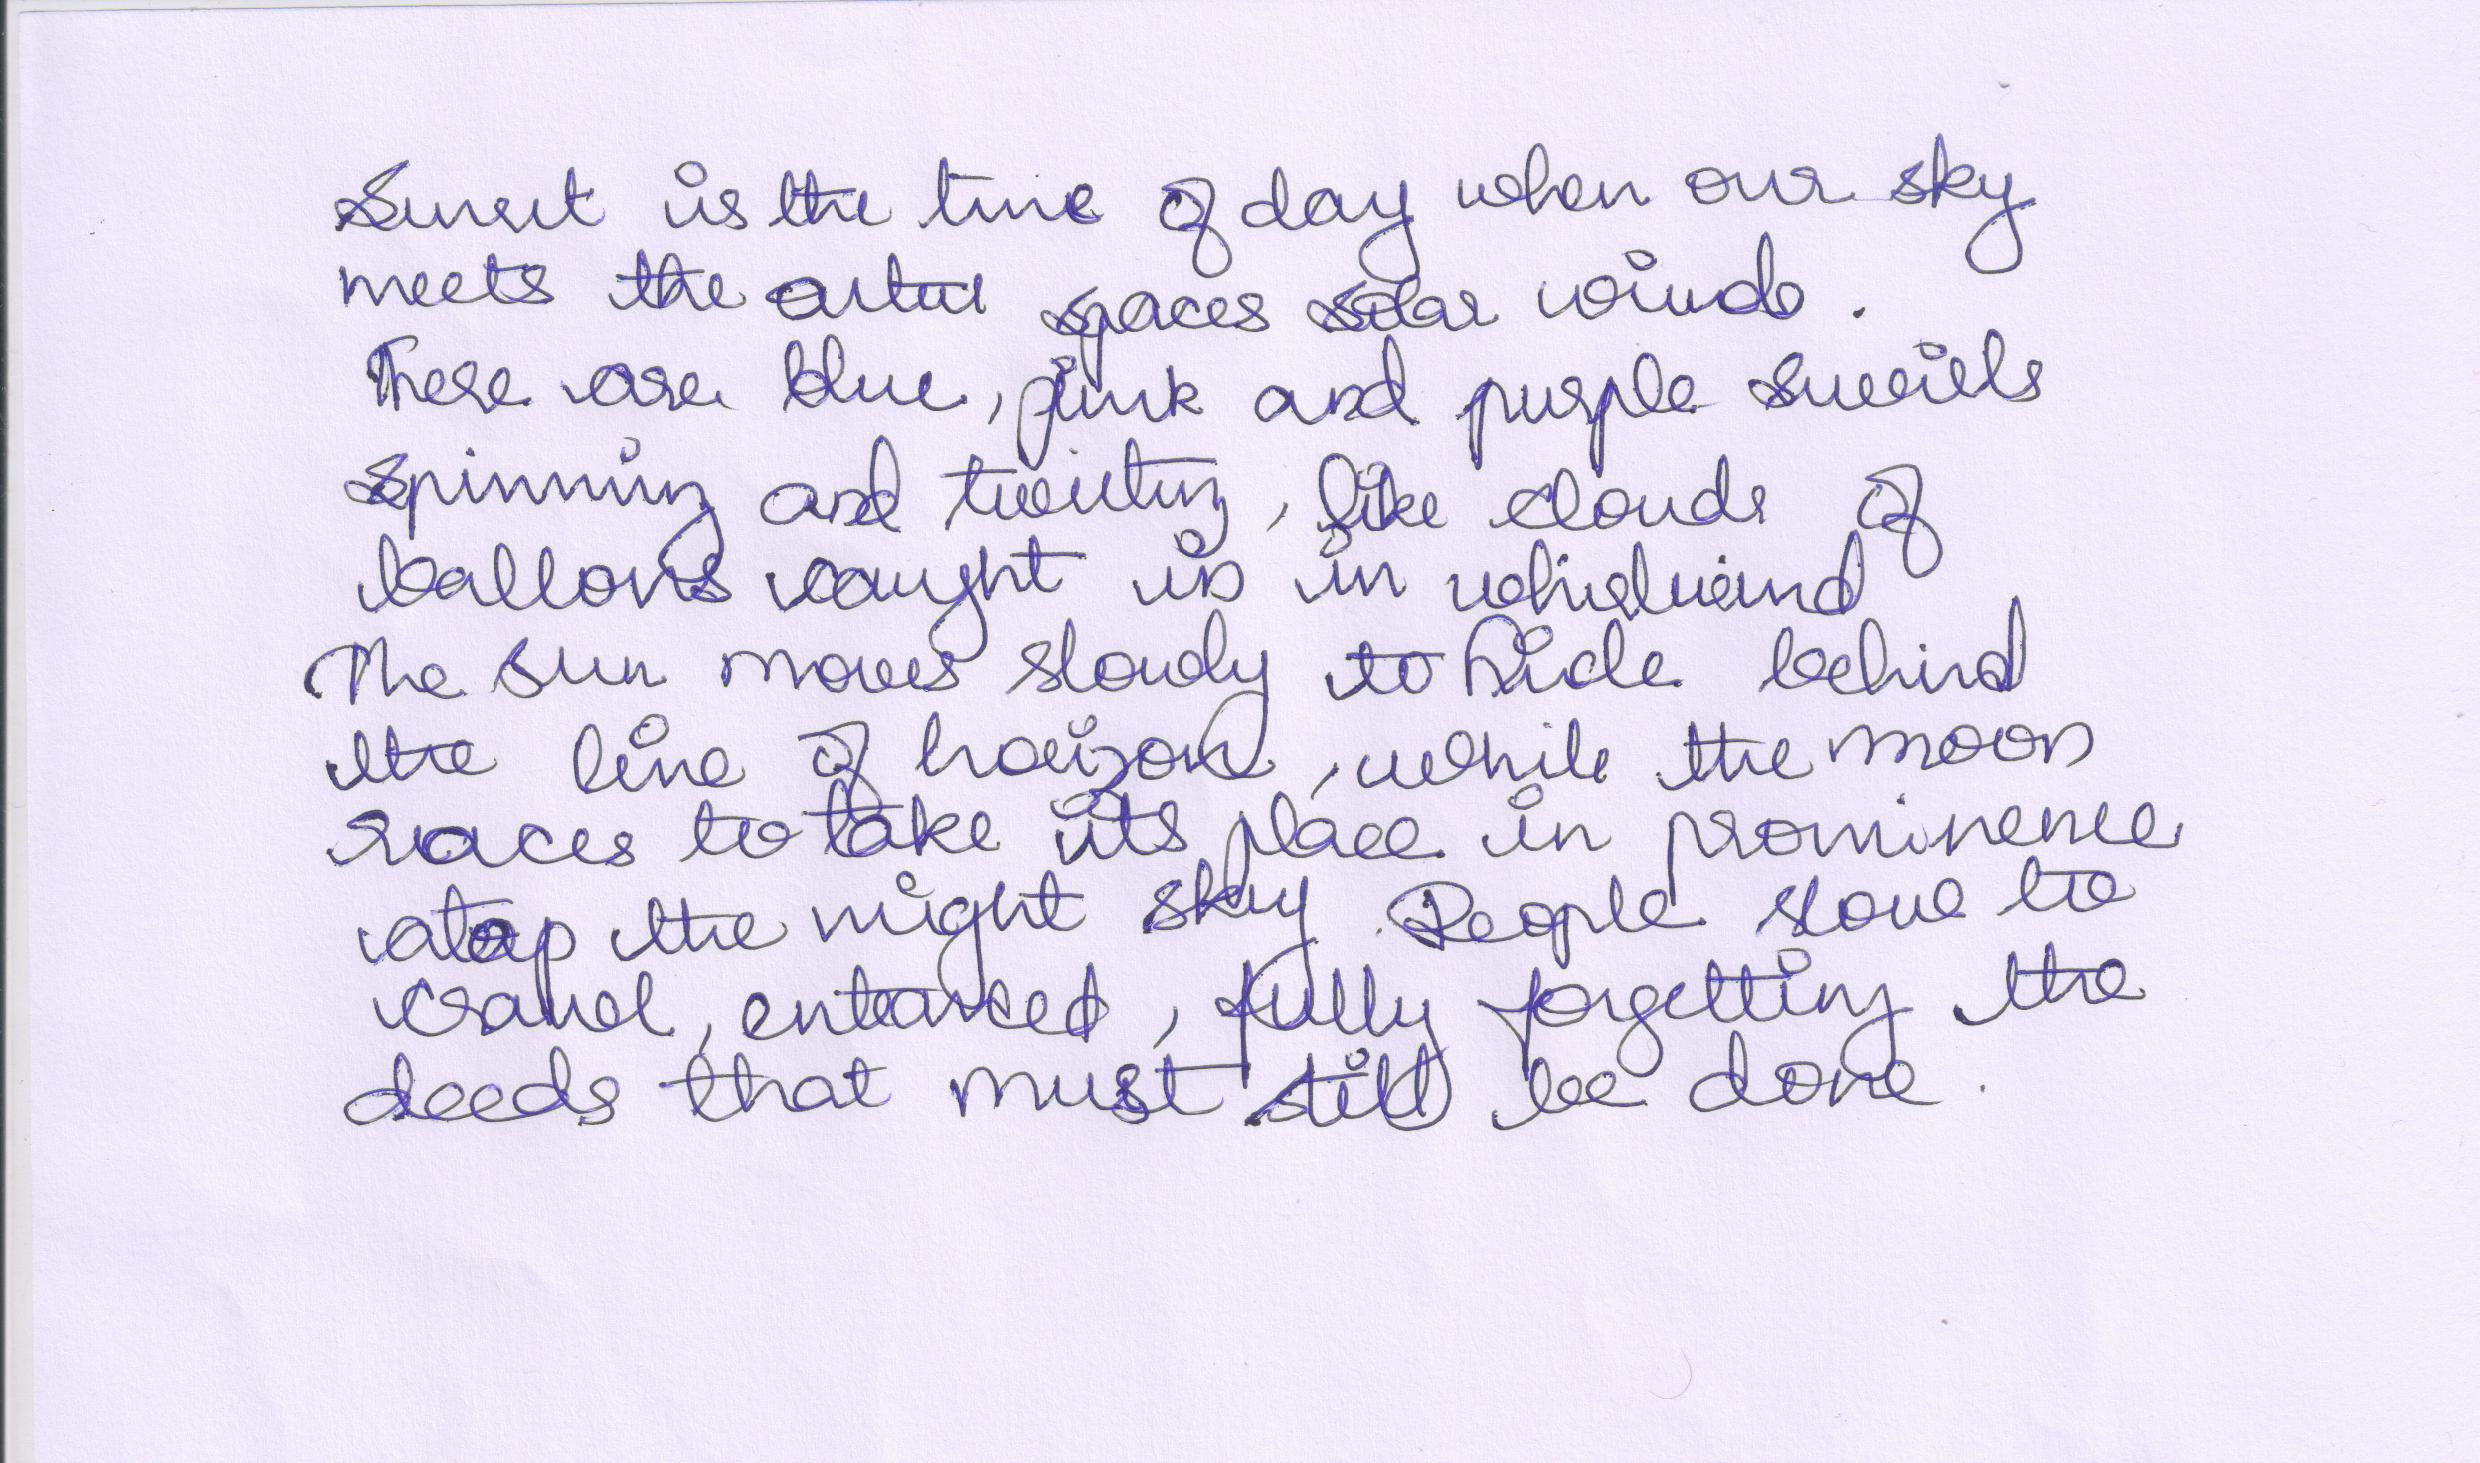 Sunset is the time of day when our sky
meets the outer spaces solar winds.
There are blue, pink and purple swirls
spinning and twisting, like clouds of
ballons caught is in whirlwind
The sun moves slowly to hide behind
the line of horizon, while the moon
races to take its place in prominence
atop the night sky. People slow to
crawl, entranced, fully forgetting the
deeds that must still be done.